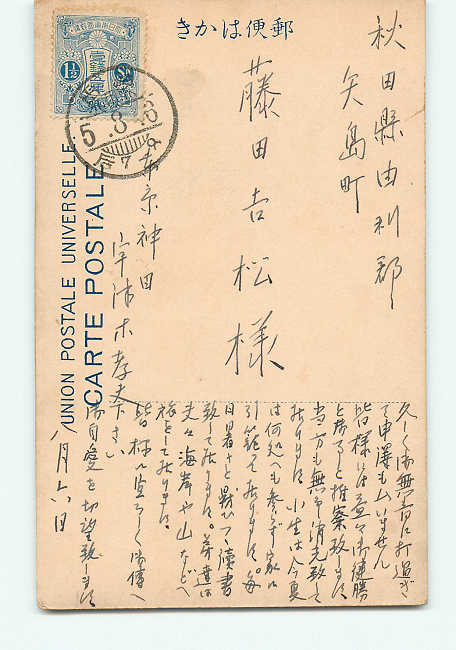 郵便はかき
秋田縣由利郡
矢島町
藤田吉松様
東京神田
宇津木孝夫
UNION POSTALE UNIVERSELLE
CARTE POSTALE
1½ Sn.
5.8.6
久しく御無音に打過ぎ
て申譯もムいません
皆々様には益々御健勝
と存ずると推察致します
当方も無事消光致して
居ります 小生は今夏
は何処へも参らず家に
引籠って居ります。毎
日暑さと戦ひつゝ讀書
致して居ります。弟達は
夫々海岸や山などへ
旅をして居ります。
皆様に宜しく御傳へ
下さい
御自愛を切望致します
八月六日